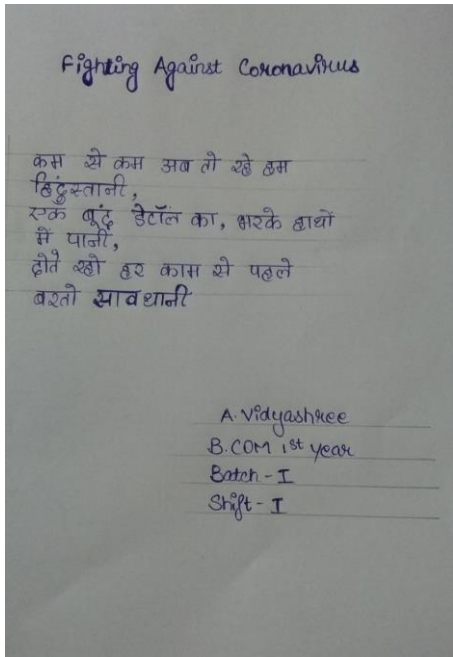 Fighting Against Coronavirus
कम से कम अब तो रहे हम
हिंदुस्तानी,
एक बूंद डेटॉल का, भरके हाथों
में पानी,
द्दोते रहो हर काम से पहले
बरतो सावधानी
A. Vidyashree
B.COM 1st year
Batch - I
Shift - I